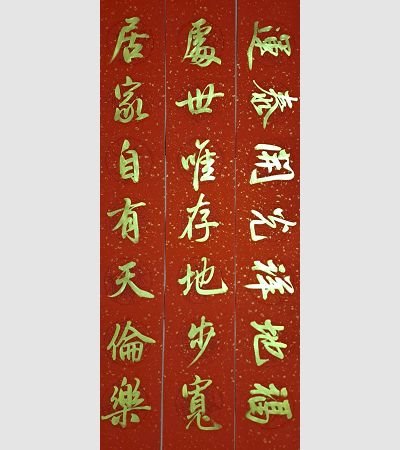 福地祥光開泰運
處世唯存地步寬
居家自有天倫樂